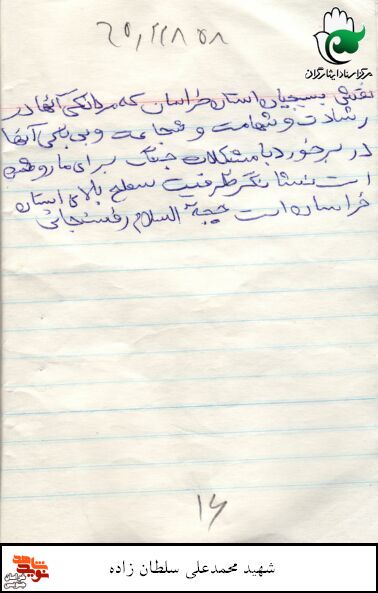 مرکز اسناد ایثارگران
نقش بسیجیان استان خراسان که مردانگی آنها در
رشادت و شهامت و شجاعت و بی باکی آنها
در برخورد با مشکلات جنگ برای ما روشن
است نشانگر ظرفیت سطح بالای استان
خراسان است حجة السلام رفسنجانی
۱۶
شهید محمدعلی سلطان زاده
نوید شاهد
خراسان رضوی